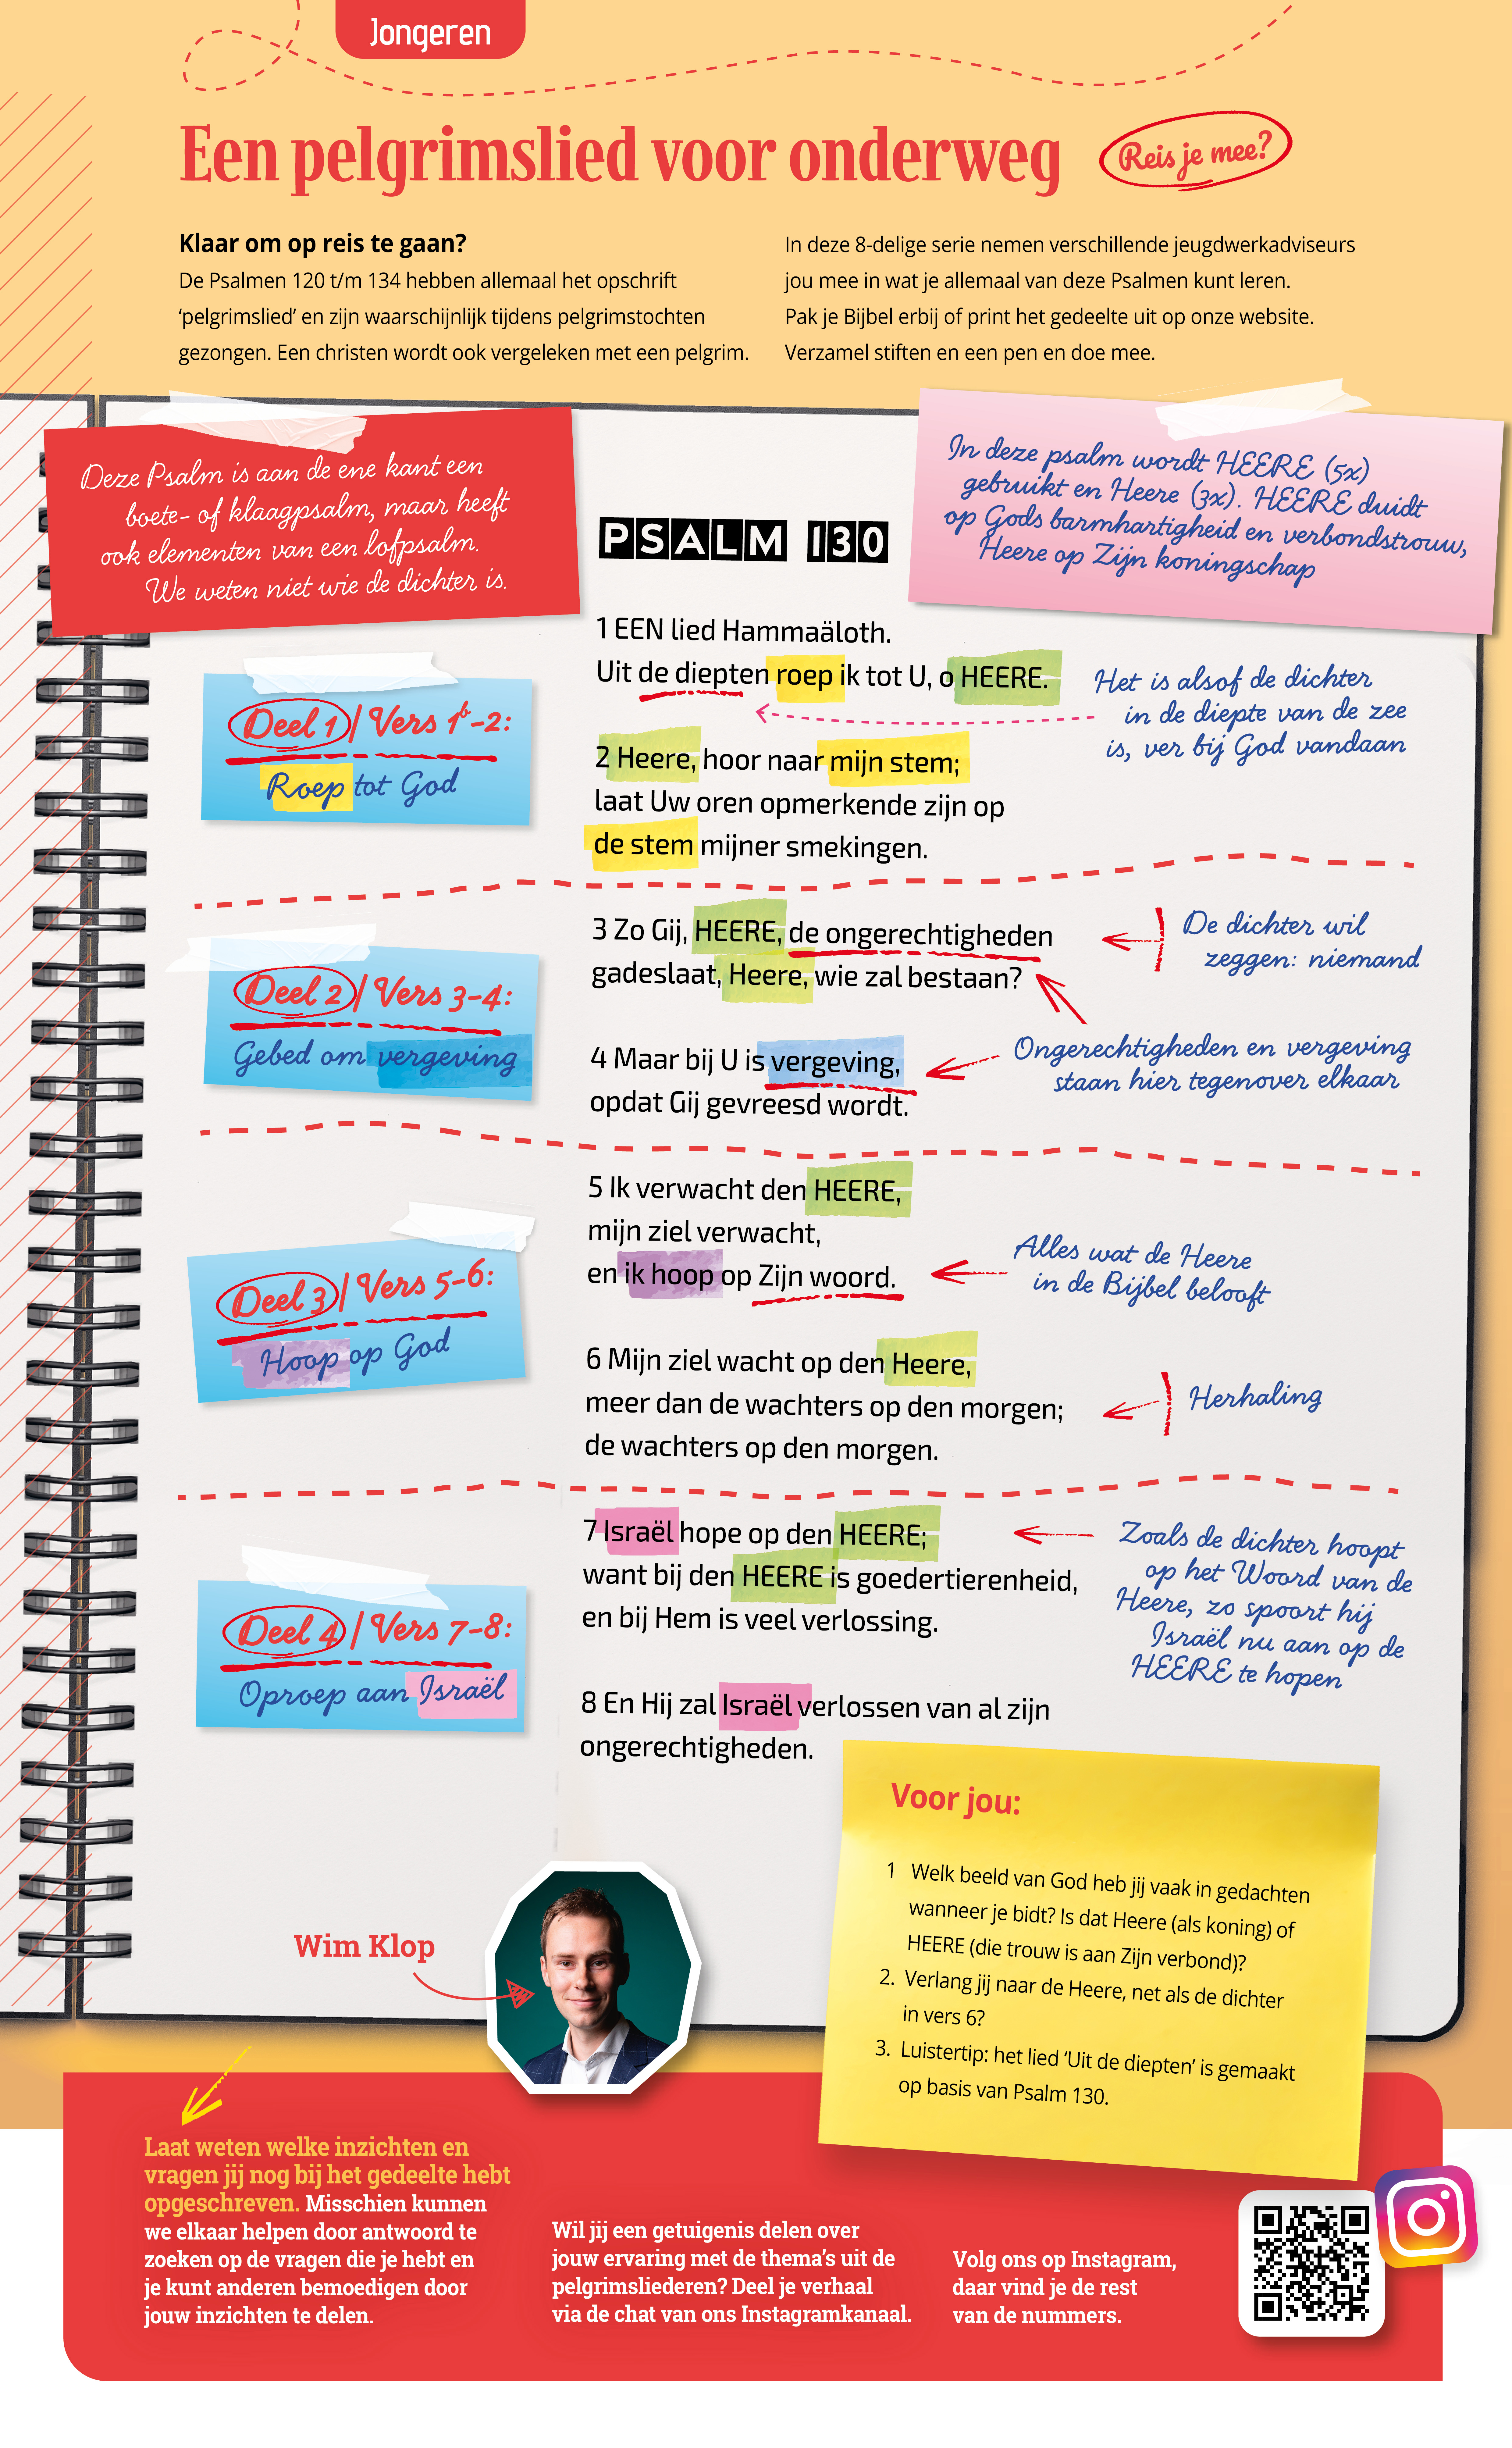 Jongeren
Een pelgrimslied voor onderweg
Reis je mee?
Klaar om op reis te gaan?
De Psalmen 120 t/m 134 hebben allemaal het opschrift
‘pelgrimslied’ en zijn waarschijnlijk tijdens pelgrimstochten
gezongen. Een christen wordt ook vergeleken met een pelgrim.
In deze 8-delige serie nemen verschillende jeugdwerkadviseurs
jou mee in wat je allemaal van deze Psalmen kunt leren.
Pak je Bijbel erbij of print het gedeelte uit op onze website.
Verzamel stiften en een pen en doe mee.
Deze Psalm is aan de ene kant een
boete- of klaagpsalm, maar heeft
ook elementen van een lofpsalm.
We weten niet wie de dichter is.
In deze psalm wordt HEERE (5x)
gebruikt en Heere (3x). HEERE duidt
op Gods barmhartigheid en verbondstrouw,
Heere op Zijn koningschap
PSALM 130
1 EEN lied Hammaäloth.
Uit de diepten roep ik tot U, o HEERE.
Het is alsof de dichter
in de diepte van de zee
is, ver bij God vandaan
Deel 1 / Vers 1b-2:
Roep tot God
2 Heere, hoor naar mijn stem;
laat Uw oren opmerkende zijn op
de stem mijner smekingen.
3 Zo Gij, HEERE, de ongerechtigheden
gadeslaat, Heere, wie zal bestaan?
De dichter wil
zeggen: niemand
Deel 2 / Vers 3-4:
Gebed om vergeving
4 Maar bij U is vergeving,
opdat Gij gevreesd wordt.
Ongerechtigheden en vergeving
staan hier tegenover elkaar
5 Ik verwacht den HEERE,
mijn ziel verwacht,
en ik hoop op Zijn woord.
Alles wat de Heere
in de Bijbel belooft
Deel 3 / Vers 5-6:
Hoop op God
6 Mijn ziel wacht op den Heere,
meer dan de wachters op den morgen;
de wachters op den morgen.
Herhaling
7 Israël hope op den HEERE;
want bij den HEERE is goedertierenheid,
en bij Hem is veel verlossing.
Zoals de dichter hoopt
op het Woord van de
Heere, zo spoort hij
Israël nu aan op de
HEERE te hopen
Deel 4 / Vers 7-8:
Oproep aan Israël
8 En Hij zal Israël verlossen van al zijn
ongerechtigheden.
Voor jou:
1 Welk beeld van God heb jij vaak in gedachten
wanneer je bidt? Is dat Heere (als koning) of
HEERE (die trouw is aan Zijn verbond)?
2. Verlang jij naar de Heere, net als de dichter
in vers 6?
3. Luistertip: het lied ‘Uit de diepten’ is gemaakt
op basis van Psalm 130.
Wim Klop
Laat weten welke inzichten en
vragen jij nog bij het gedeelte hebt
opgeschreven. Misschien kunnen
we elkaar helpen door antwoord te
zoeken op de vragen die je hebt en
je kunt anderen bemoedigen door
jouw inzichten te delen.
Wil jij een getuigenis delen over
jouw ervaring met de thema’s uit de
pelgrimsliederen? Deel je verhaal
via de chat van ons Instagramkanaal.
Volg ons op Instagram,
daar vind je de rest
van de nummers.